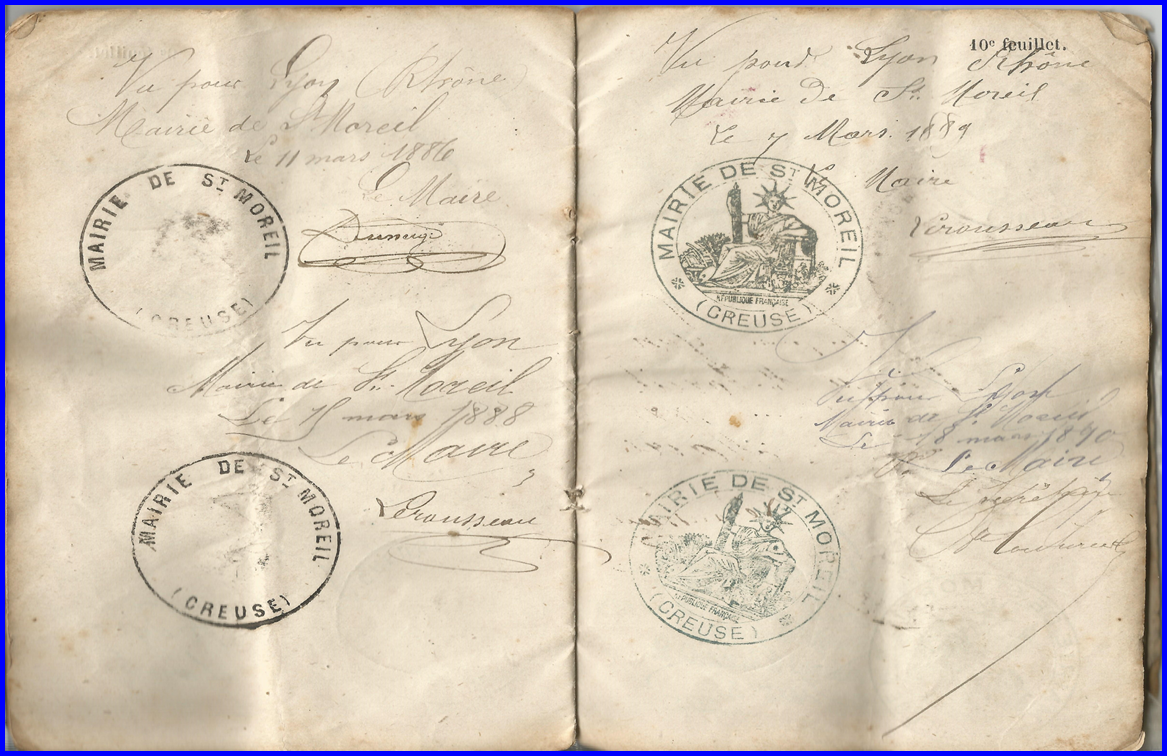 Vu pour Lyon Rhône
Mairie de St Moreil
Le 11 mars 1886
Le Maire
MAIRIE DE ST MOREIL
(CREUSE)
Vu pour Lyon
Mairie de St Moreil
Le 15 mars 1888
Le Maire
Lerousseau
MAIRIE DE ST MOREIL
(CREUSE)
10e feuillet.
Vu pour Lyon Rhône
Mairie de St Moreil
Le 7 Mars 1889
Le Maire
Lerousseau
MAIRIE DE ST MOREIL
REPUBLIQUE FRANÇAISE
(CREUSE)
Vu pour Lyon
Mairie de St Moreil
Le 18 mars 1890
Le Maire
MAIRIE DE ST MOREIL
REPUBLIQUE FRANÇAISE
(CREUSE)